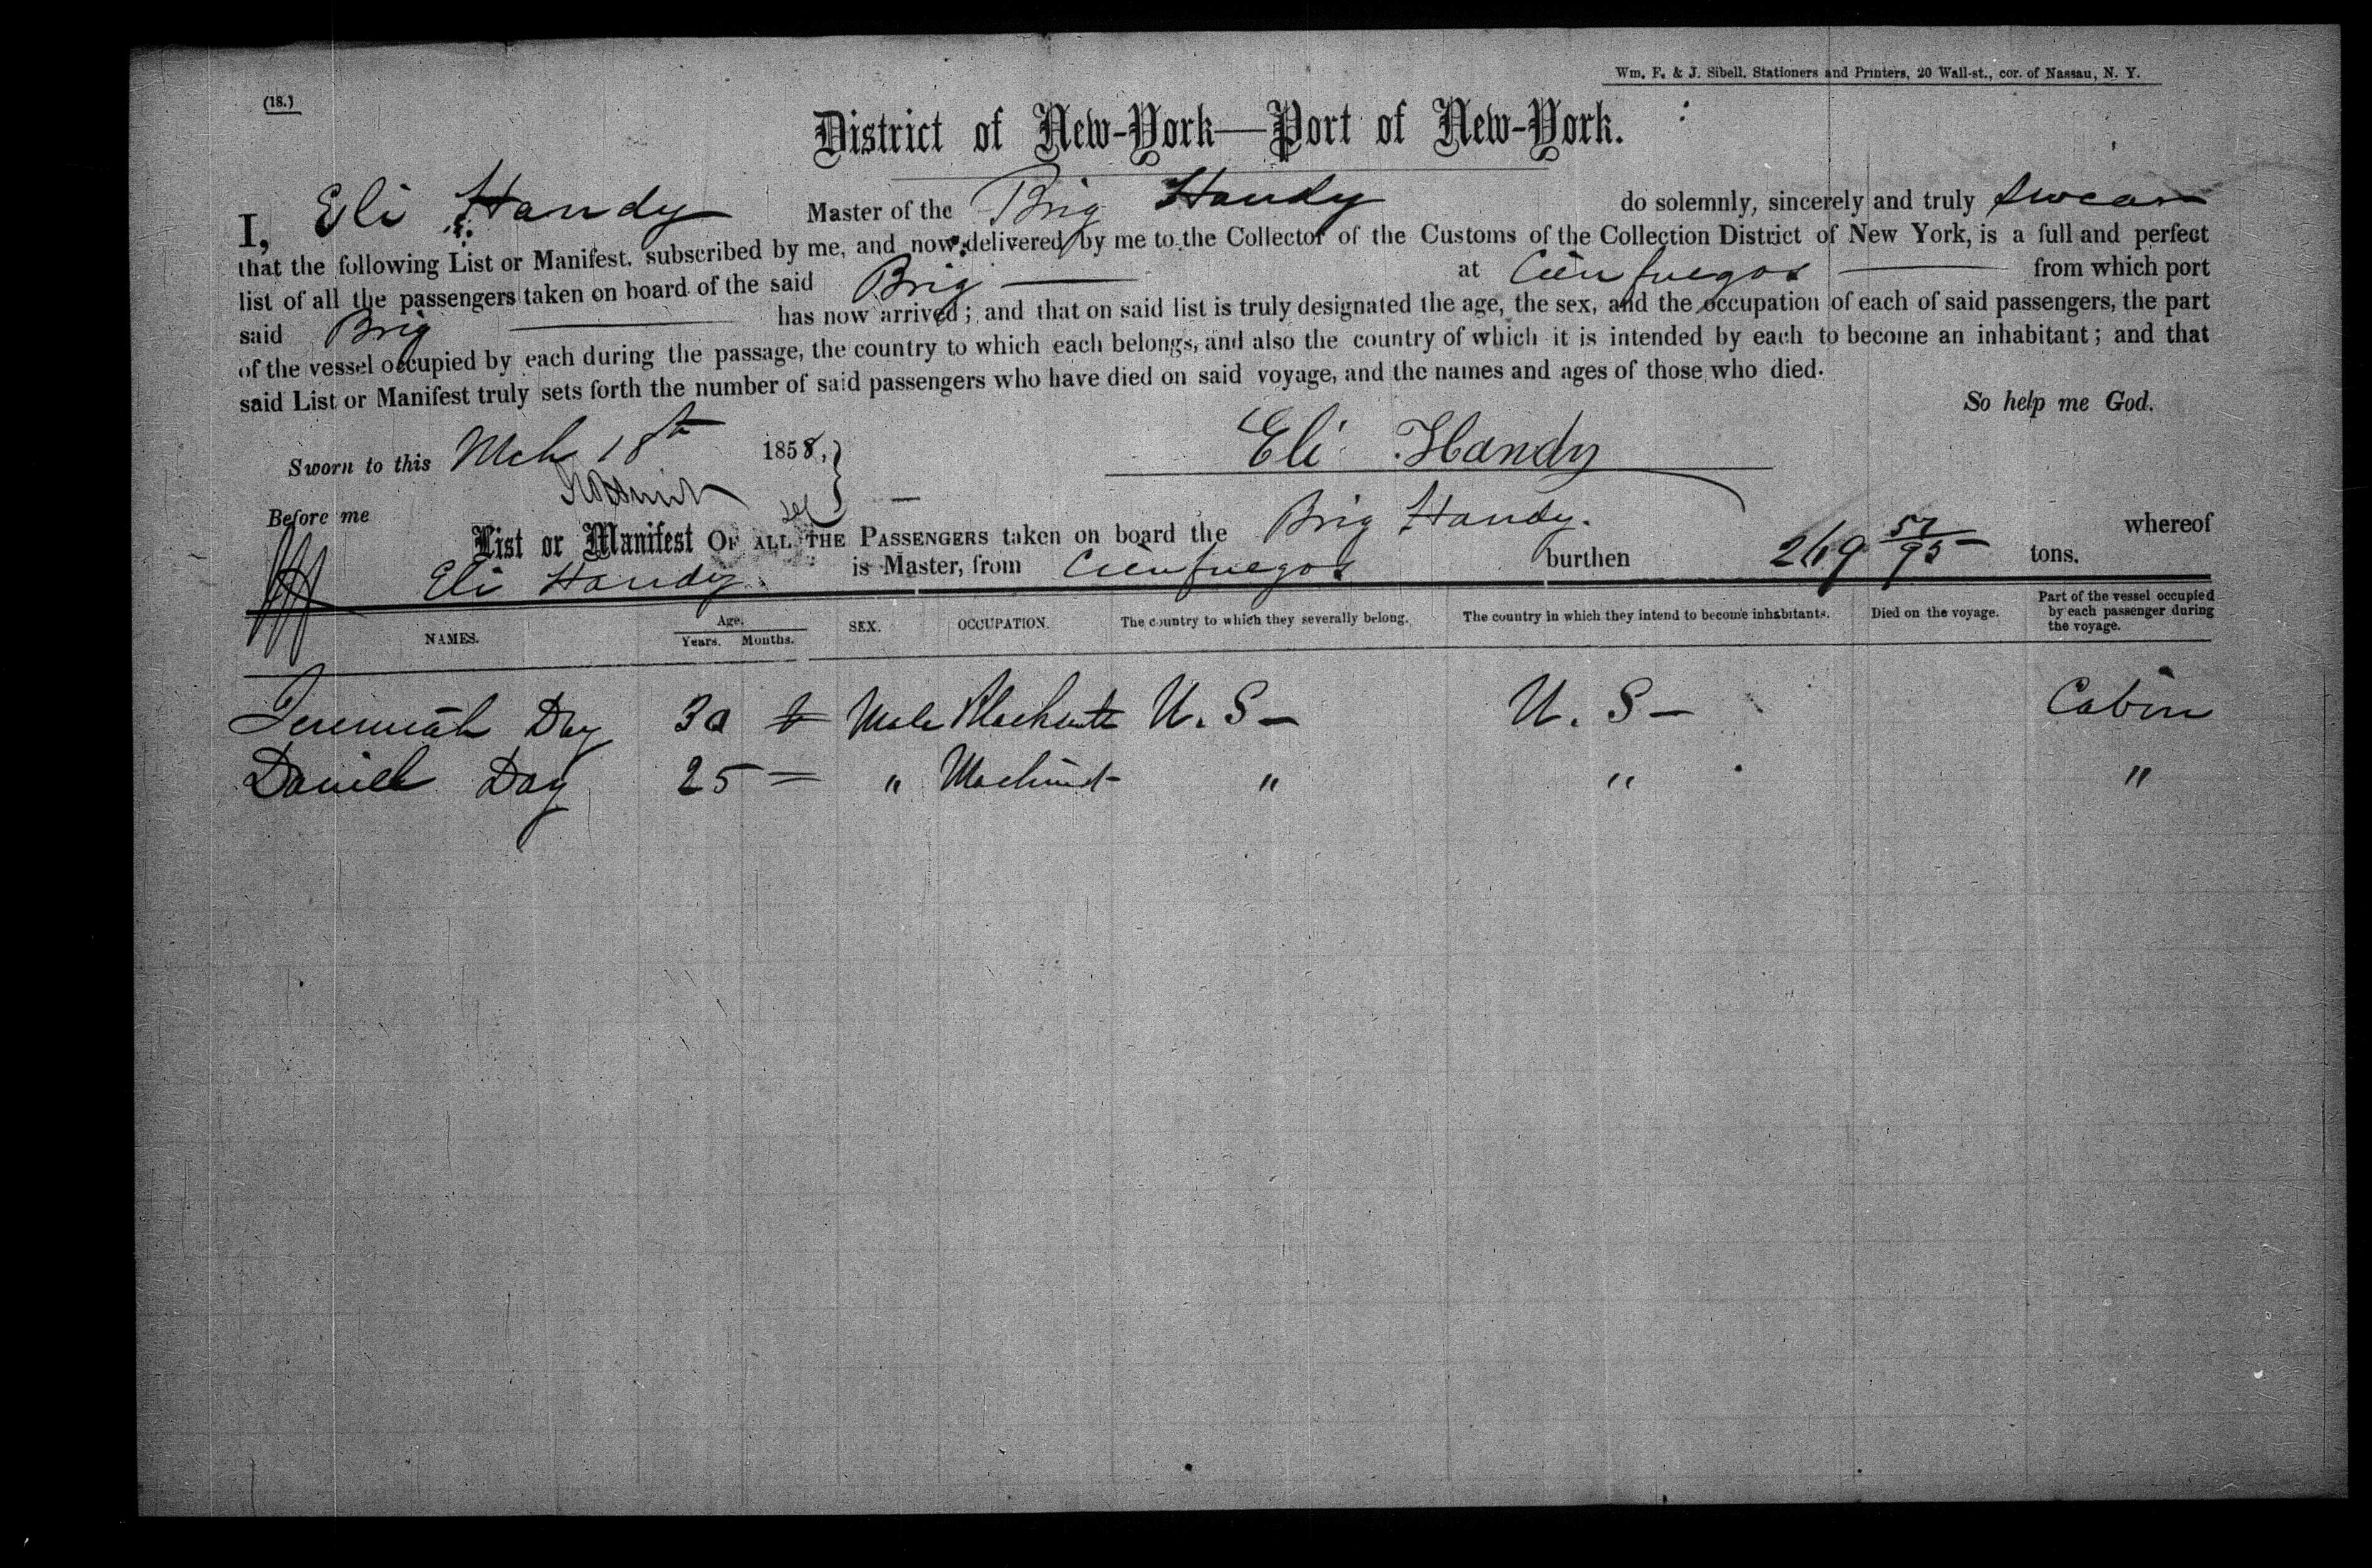 Wm. F. & J. Sibell, Stationers and Printers, 20 Wall-st., cor. of Nassau, N. Y.
(18.)
District of New-York—Port of New-York.
I, Eli Handy Master of the Brig Handy do solemnly, sincerely and truly swear
that the following List or Manifest, subscribed by me, and now delivered by me to the Collector of the Customs of the Collection District of New York, is a full and perfect
list of all the passengers taken on board of the said Brig at Cienfuegos from which port
said Brig has now arrived; and that on said list is truly designated the age, the sex, and the occupation of each of said passengers, the part
of the vessel occupied by each during the passage, the country to which each belongs, and also the country of which it is intended by each to become an inhabitant; and that
said List or Manifest truly sets forth the number of said passengers who have died on said voyage, and the names and ages of those who died.
So help me God.
Sworn to this Mch 18th 1858, Eli Handy
Before me
List or Manifest OF ALL THE PASSENGERS taken on board the Brig Handy. whereof
Eli Handy is Master, from Cienfuegos burthen 269 57/95 tons.
NAMES. Age. Years. Months. SEX. OCCUPATION. The country to which they severally belong. The country in which they intend to become inhabitants. Died on the voyage. Part of the vessel occupied by each passenger during the voyage.
Jeremiah Day 30 Male U.S— U.S— Cabin
Daniel Day 25 — " Machinist " " "